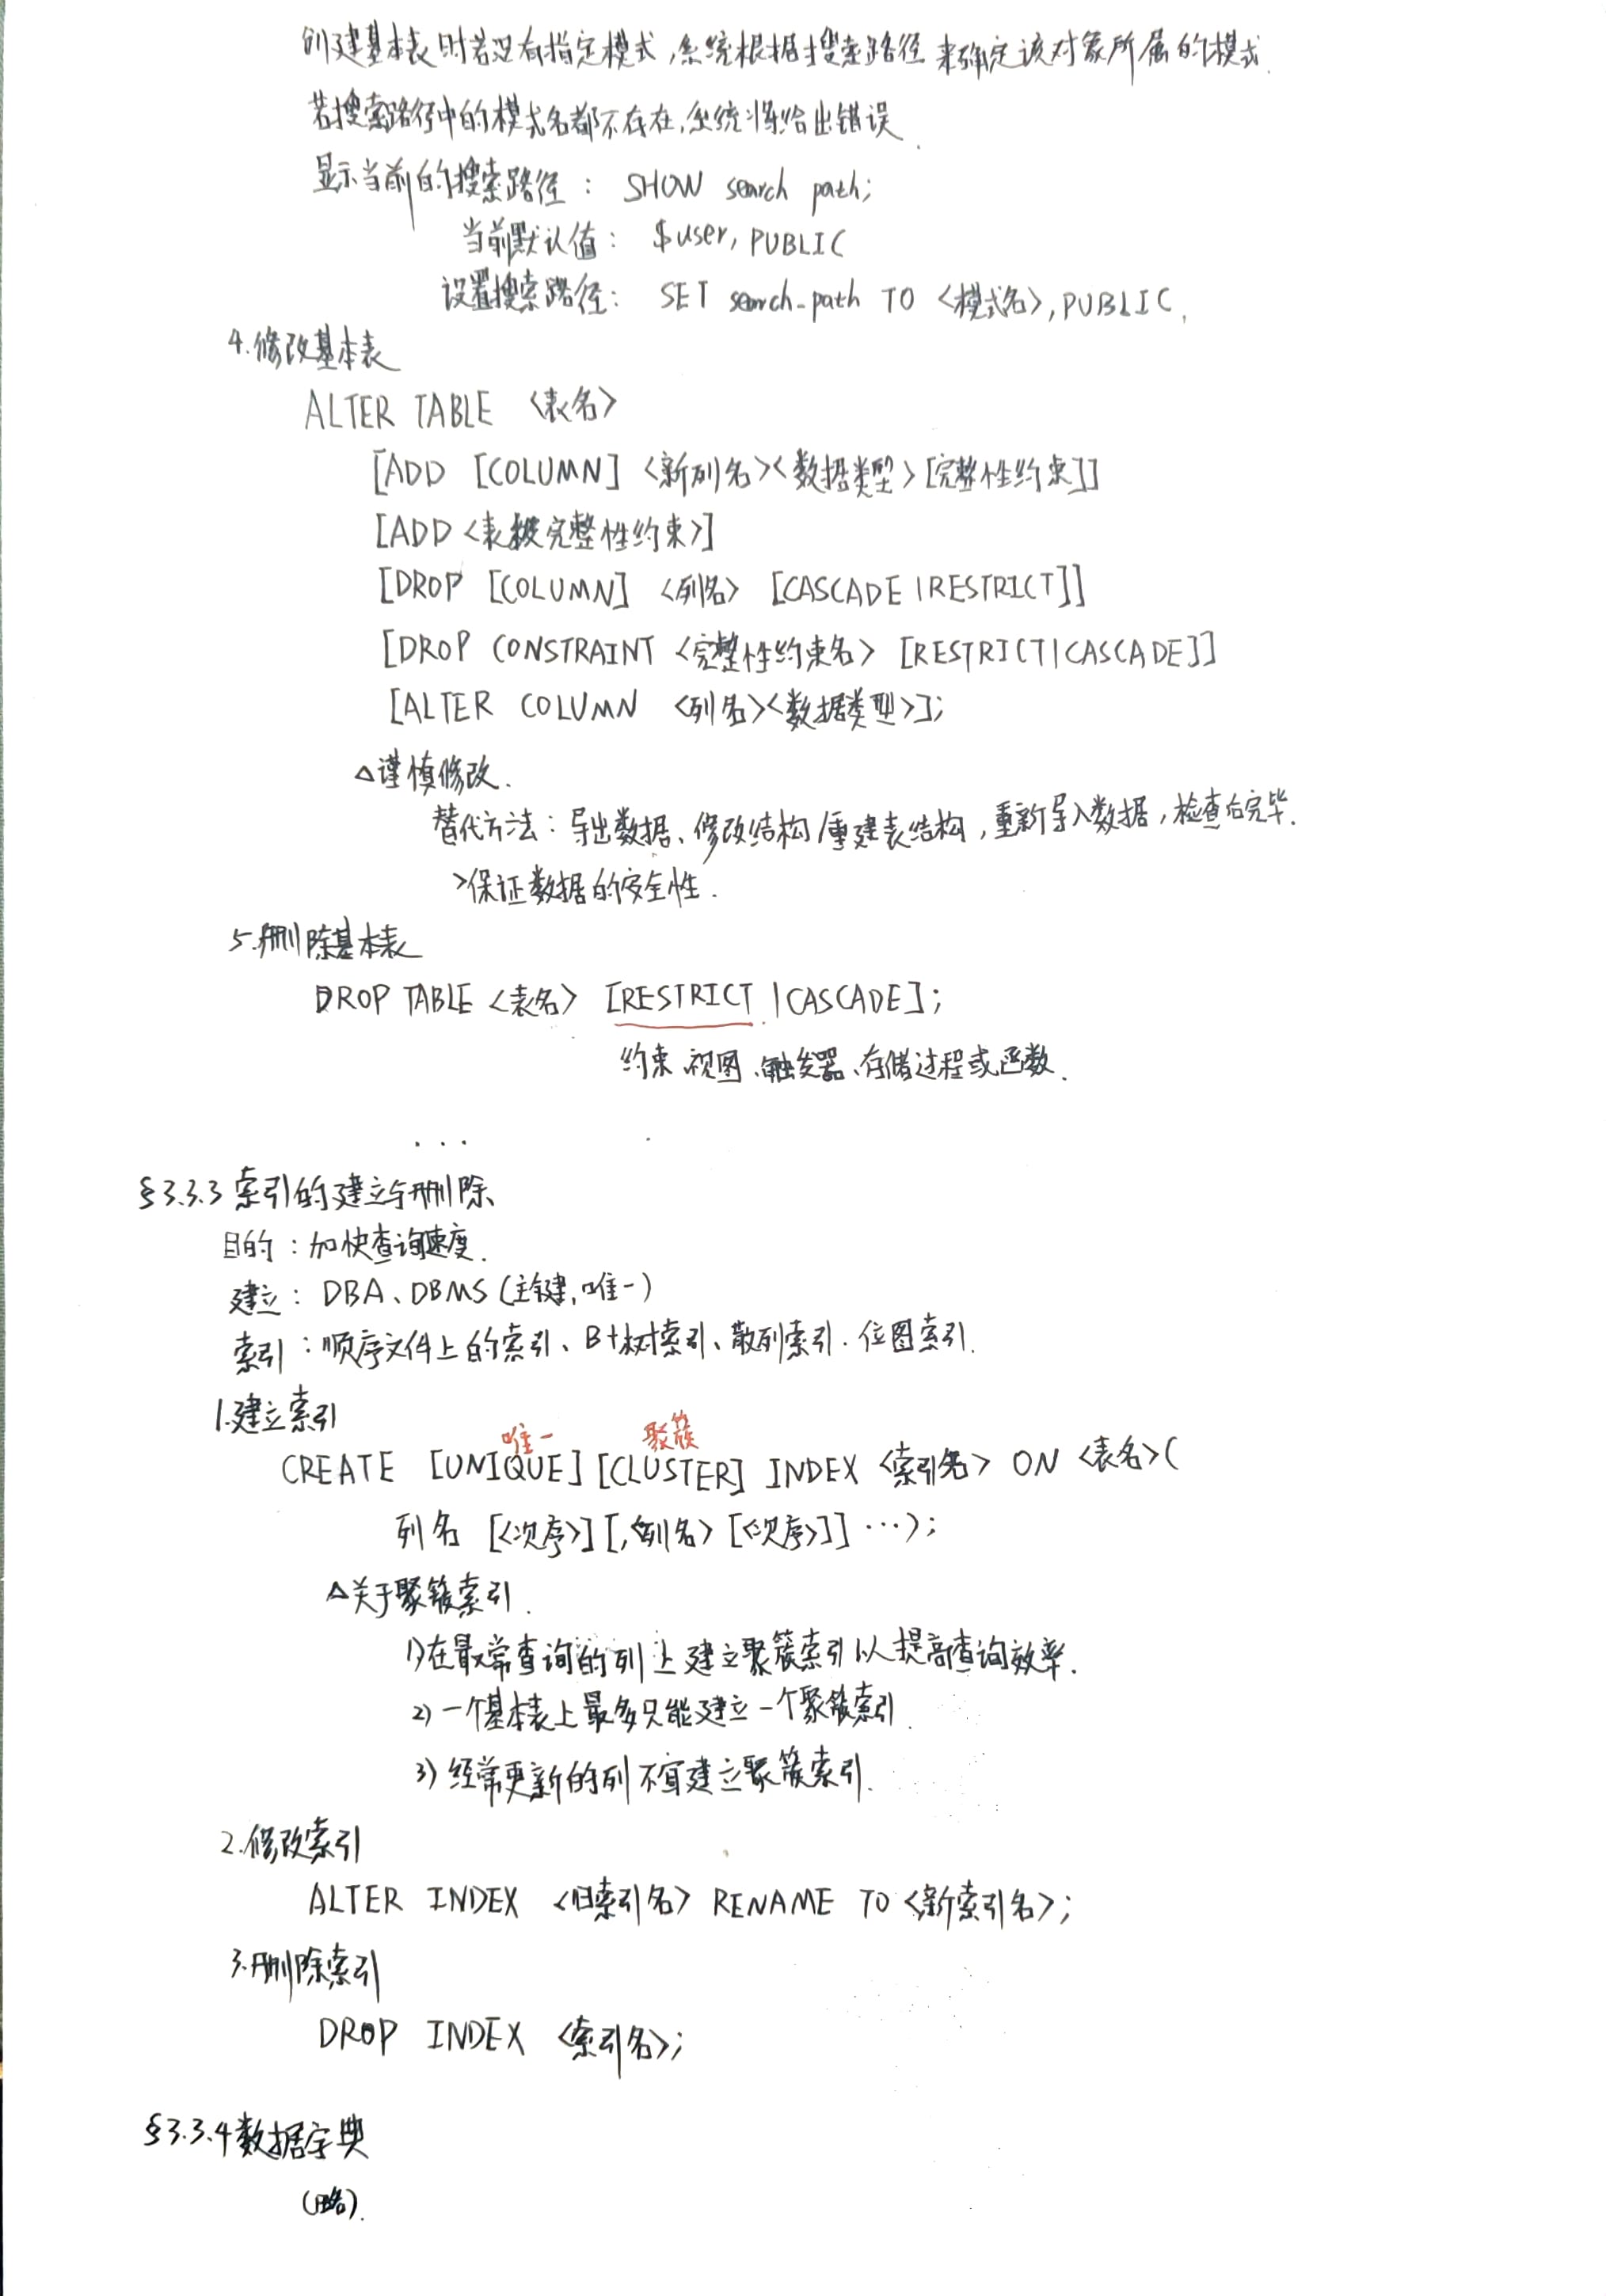 创建基本表时若没有指定模式,系统根据搜索路径来确定该对象所属的模式.
若搜索路径中的模式名都不存在,系统将给出错误.
显示当前的搜索路径: SHOW search path;
当前默认值: $user, PUBLIC
设置搜索路径: SET search_path TO <模式名>, PUBLIC.
4.修改基本表
ALTER TABLE <表名>
[ADD [COLUMN] <新列名><数据类型>[完整性约束]]
[ADD <表级完整性约束>]
[DROP [COLUMN] <列名> [CASCADE|RESTRICT]]
[DROP CONSTRAINT <完整性约束名> [RESTRICT|CASCADE]]
[ALTER COLUMN <列名><数据类型>];
△谨慎修改.
替代方法: 导出数据、修改结构/重建表结构,重新导入数据,检查后完毕.
>保证数据的安全性.
5.删除基本表
DROP TABLE <表名> [RESTRICT|CASCADE];
约束、视图、触发器、存储过程或函数.
...
§3.3.3 索引的建立与删除
目的:加快查询速度.
建立: DBA、DBMS (主键,唯一)
索引:顺序文件上的索引、B+树索引、散列索引.位图索引.
1.建立索引
唯一 聚簇
CREATE [UNIQUE][CLUSTER] INDEX <索引名> ON <表名>(
列名 [<次序>][,<列名>[<次序>]] …);
△关于聚簇索引.
1)在最常查询的列上建立聚簇索引以提高查询效率.
2) 一个基本表上最多只能建立一个聚簇索引.
3) 经常更新的列不宜建立聚簇索引.
2.修改索引
ALTER INDEX <旧索引名> RENAME TO <新索引名>;
3.删除索引
DROP INDEX <索引名>;
§3.3.4 数据字典
(略).